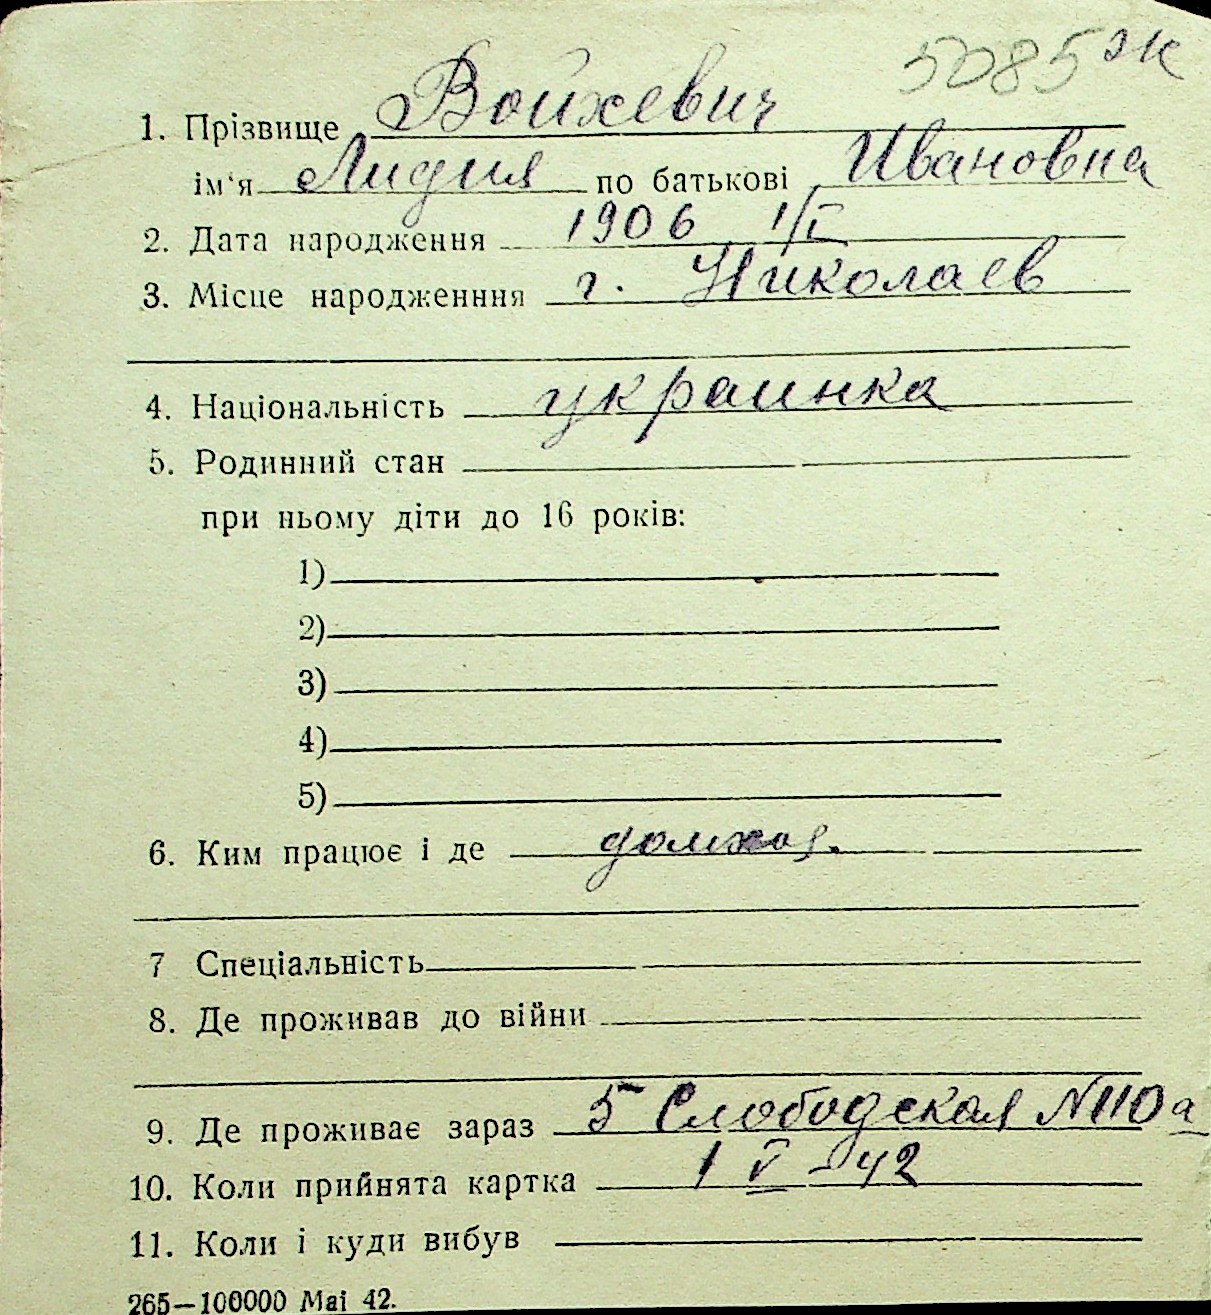 5085 эк
1. Прізвище Войхевич
ім'я Лидия по батькові Ивановна
2. Дата народження 1906 1/I
3. Місце народженння г. Николаев
4. Національність украинка
5. Родинний стан
при ньому діти до 16 років:
1)
2)
3)
4)
5)
6. Ким працює і де домхоз.
7 Спеціальність
8. Де проживав до війни
9. Де проживає зараз 5 Слободская N110а
10. Коли прийнята картка 1 V - 42
11. Коли і куди вибув
265—100000 Mai 42.